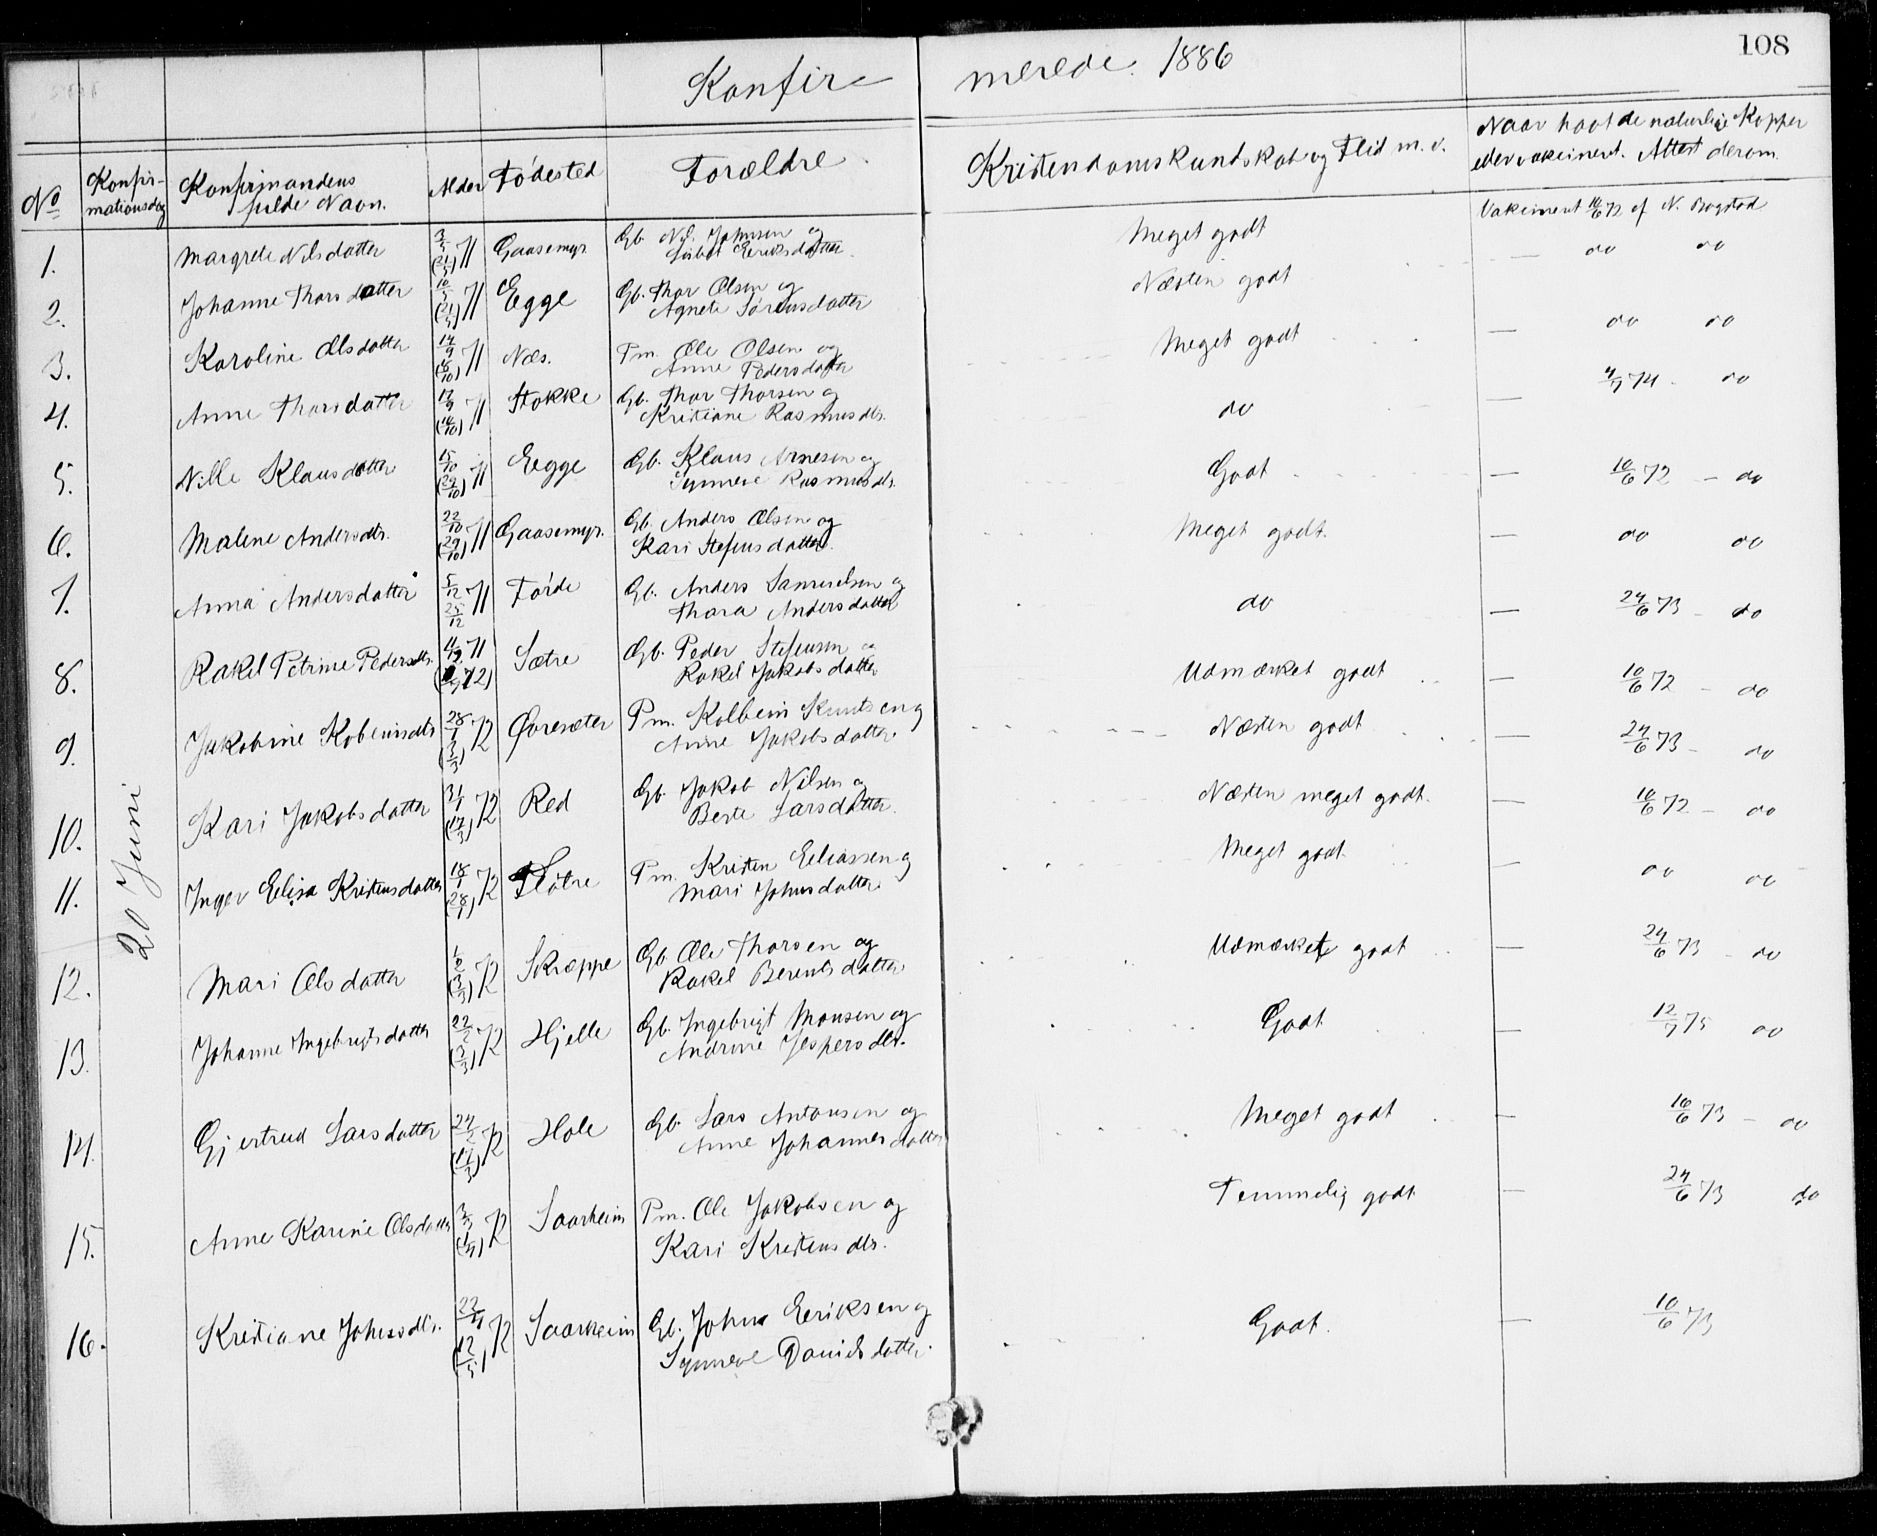 108
Konfirmerede. 1886
No
Konfirmationsdag
Konfirmandens fulde Navn.
Alder
Fødested
Forældre
Kristendomskundskab og Flid m. v.
Naar havt de naturlige Kopper eller vakcineret. Attest derom.
20 Juni
1. Margrete Nilsdatter 71 Gaasemyr. Gb. Nils Johnsen og Eriksdatter. Meget godt Vakcineret 10/6 72 af N. Bogstad
2. Johanne Thorsdatter 10/5 (21/5) 71 Egge Gb. Thor Olsen og Agnete Sørensdatter Næsten godt — do do
3. Karoline Olsdatter 14/9 71 Næs. Pm. Ole Olsen og Anne Pedersdatter Meget godt — do do
4. Anne Thorsdatter 71 Stokke Gb. Thor Thorsen og Kristiane Rasmusdtr. do — 4/7 74 - do
5. Nille Klausdatter 15/10 (29/10) 71 Eegge Gb. Klaus Arnesen og Synneve Rasmusdtr. Godt — 10/6 72 - do
6. Malene Andersdtr. 22/10 (29/10) 71 Gaasemyr. Gb. Anders Olsen og Kari Stefensdatter. Meget godt. — do do
7. Anna Andersdatter 5/12 25/12 71 Førde Gb. Anders Samuelsen og Thora Andersdatter do — 24/6 73 - do
8. Rakel Petrine Pedersdtr. 71 Sætre Gb. Peder Stefensen og Rakel Jakobsdatter Udmærket godt — 10/6 72 - do
9. Jakobine Kobeinsdtr 28/1 (3/3) 72 Øvresæter Pm. Kolbein Knutsen og Anne Jakobsdatter Næsten godt — 24/6 73 - do
10. Kari Jakobsdatter 31/1 (17/3) 72 Red Gb. Jakob Nilsen og Berte Larsdatter. Næsten meget godt. — 10/6 72 - do
11. Inger Elisa Kristensdatter 18/1 (28/1) 72 Fløtre Pm. Kristen Eeliassen og Mari Johnsdatter Meget godt — do do
12. Mari Olsdatter 1/2 (3/3) 72 Skræppe Gb. Ole Thorsen og Rakel Berentsdatter Udmærket godt — 24/6 73 - do
13. Johanne Ingebrigtsdatter 22/2 (3/3) 72 Hjelle Gb. Ingebrigt Monsen og Andrine Jespersdtr. Godt — 12/7 75 do
14. Gjertrud Larsdatter 24/2 (17/3) 72 Hole Gb. Lars Antonsen og Anne Johannesdatter Meget godt — 10/6 73 - do
15. Anne Karine Olsdatter 3/3 (1/4) 72 Saarheim Pm. Ole Jakobsen og Kari Kristensdtr. Temmelig godt — 24/6 73 do
16. Kristiane Johnsdtr. 22/4 (12/5) 72 Saarheim Gb. John Eeriksen og Synneve Danielsdatter. Godt. — 10/6 73